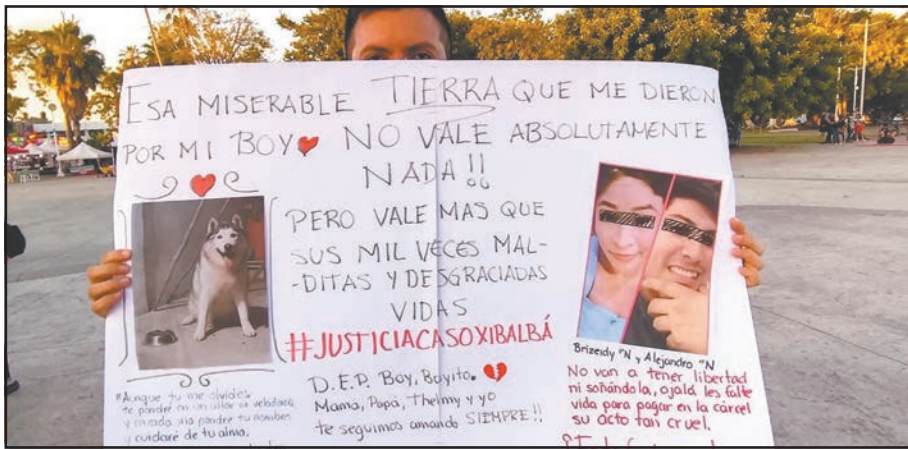 ESA MISERABLE TIERRA QUE ME DIERON
POR MI BOY NO VALE ABSOLUTAMENTE
NADA!!
PERO VALE MAS QUE
SUS MIL VECES MAL-
-DITAS Y DESGRACIADAS
VIDAS
#JUSTICIACASOXIBALBÁ
D.E.P. Boy, Boyito.
Mamá, Papá, Thelmy y yo
te seguimos amando SIEMPRE!!
"Aunque tu me olvides
te pondré en un altar de veladoras
y en cada una pondré tu nombre
y cuidaré de tu alma.
Brizeidy "N y Alejandro "N
No van a tener libertad
ni soñándola, ojalá les falte
vida para pagar en la cárcel
su acto tan cruel.